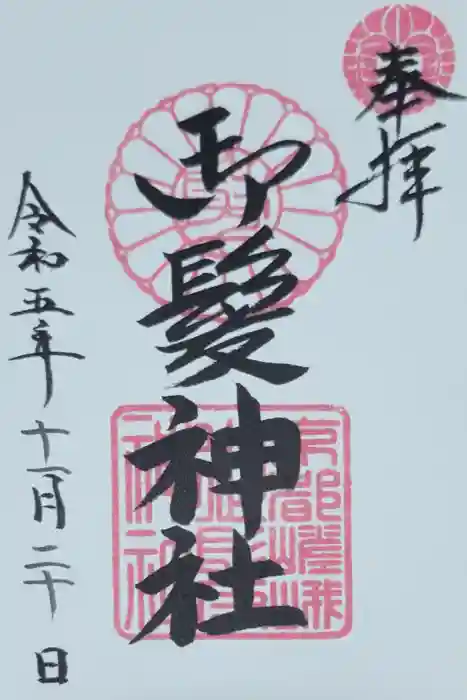 奉拝
御髪神社
令和五年十一月二十日